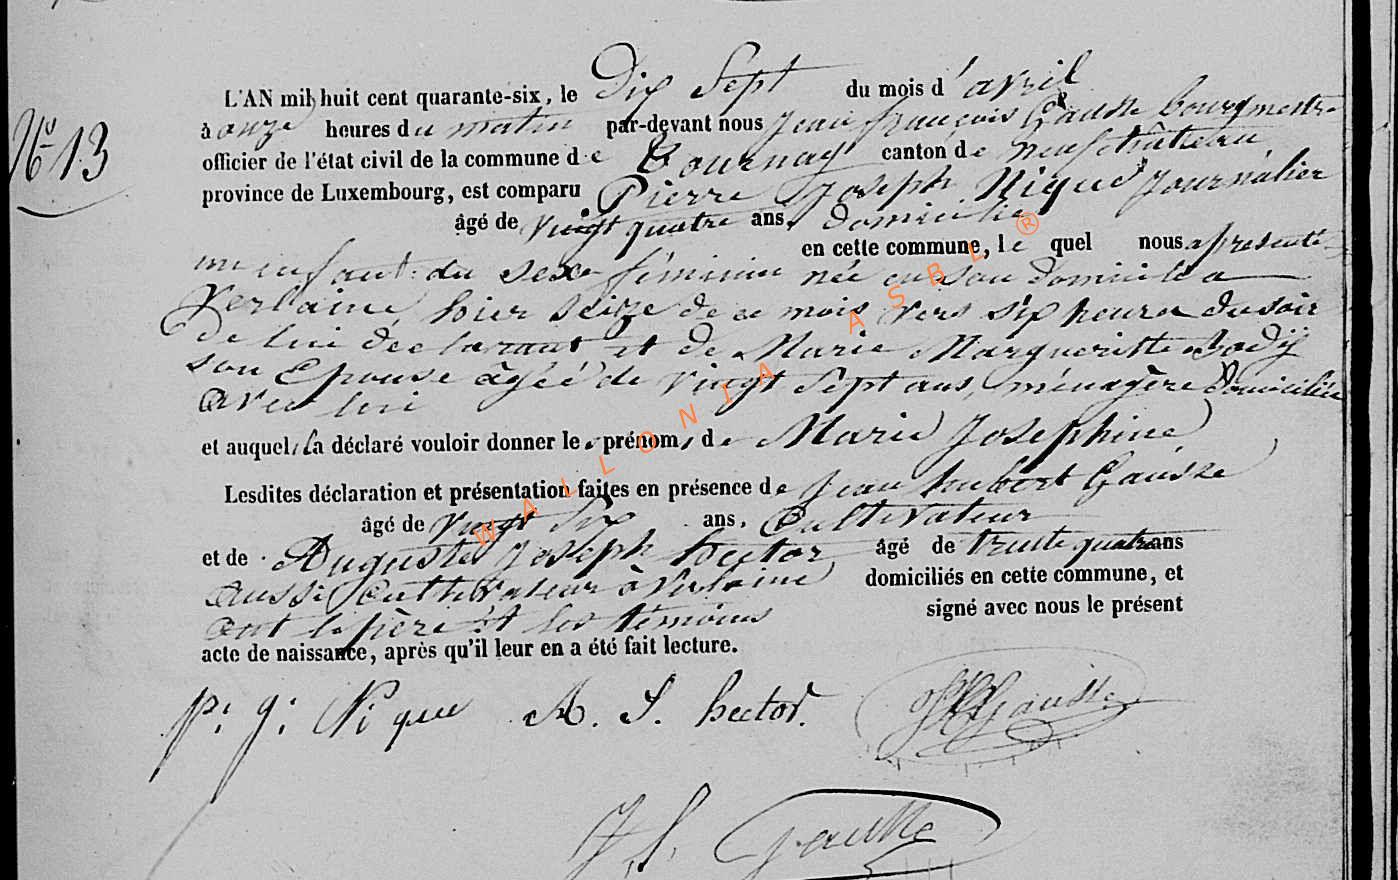 L'AN mil huit cent quarante-six, le Dix Sept du mois d'avril
à onze heures du matin par-devant nous Jean françois Gausse bourgmestre
officier de l'état civil de la commune de Tournay canton de neufchâteau
N° 13
province de Luxembourg, est comparu Pierre Joseph Nique Journalier
âgé de vingt quatre ans, domicilié
en cette commune, lequel nous a présenté
un enfant du sexe féminin née en son domicile a
Verlaine hier seize de ce mois vers six heures du soir
de lui déclarant et de Marie Margueritte Body
son Epouse âgéé de vingt Sept ans, ménagère Domiciliée
avec lui
et auquel il a déclaré vouloir donner les prénoms de Marie Josephine
Lesdites déclaration et présentation faites en présence de Jean hubert Gausse
âgé de vingt Six ans, Cultivateur
et de Auguste Joseph hector âgé de trente quatre ans
aussi Cultivateur à Verlaine domiciliés en cette commune, et
ont le père et les témoins signé avec nous le présent
acte de naissance, après qu'il leur en a été fait lecture.
p. j. Nique A. J. hector. Gausse
Gausse
WALLONIA ASBL ®